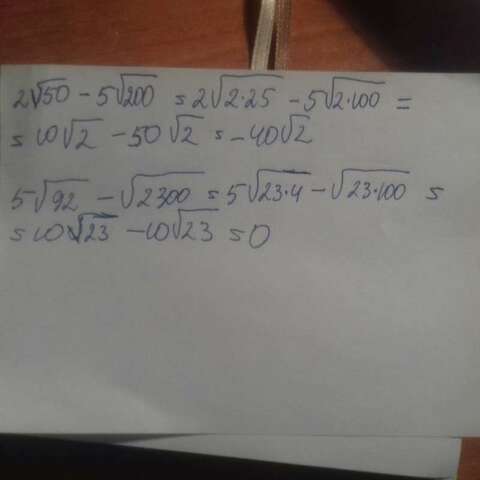 2√50 − 5√200 = 2√2·25 − 5√2·100 =
= 10√2 − 50√2 = −40√2
5√92 − √2300 = 5√23·4 − √23·100 =
= 10√23 − 10√23 = 0